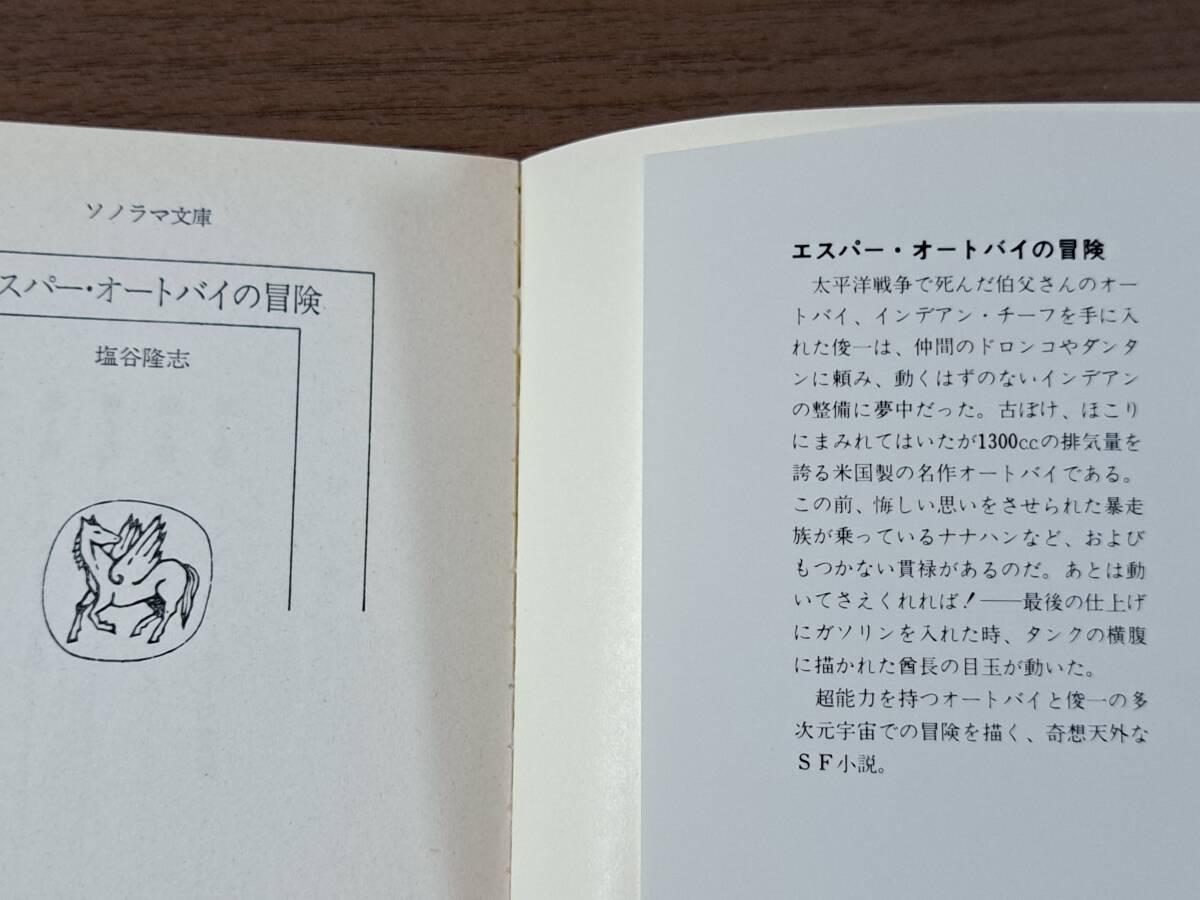 ソノラマ文庫
スパー・オートバイの冒険
塩谷隆志
エスパー・オートバイの冒険
太平洋戦争で死んだ伯父さんのオー
トバイ、インデアン・チーフを手に入
れた俊一は、仲間のドロンコやダンタ
ンに頼み、動くはずのないインデアン
の整備に夢中だった。古ぼけ、ほこり
にまみれてはいたが1300c.c.の排気量を
誇る米国製の名作オートバイである。
この前、悔しい思いをさせられた暴走
族が乗っているナナハンなど、および
もつかない貫禄があるのだ。あとは動
いてさえくれれば!――最後の仕上げ
にガソリンを入れた時、タンクの横腹
に描かれた酋長の目玉が動いた。
超能力を持つオートバイと俊一の多
次元宇宙での冒険を描く、奇想天外な
SF小説。